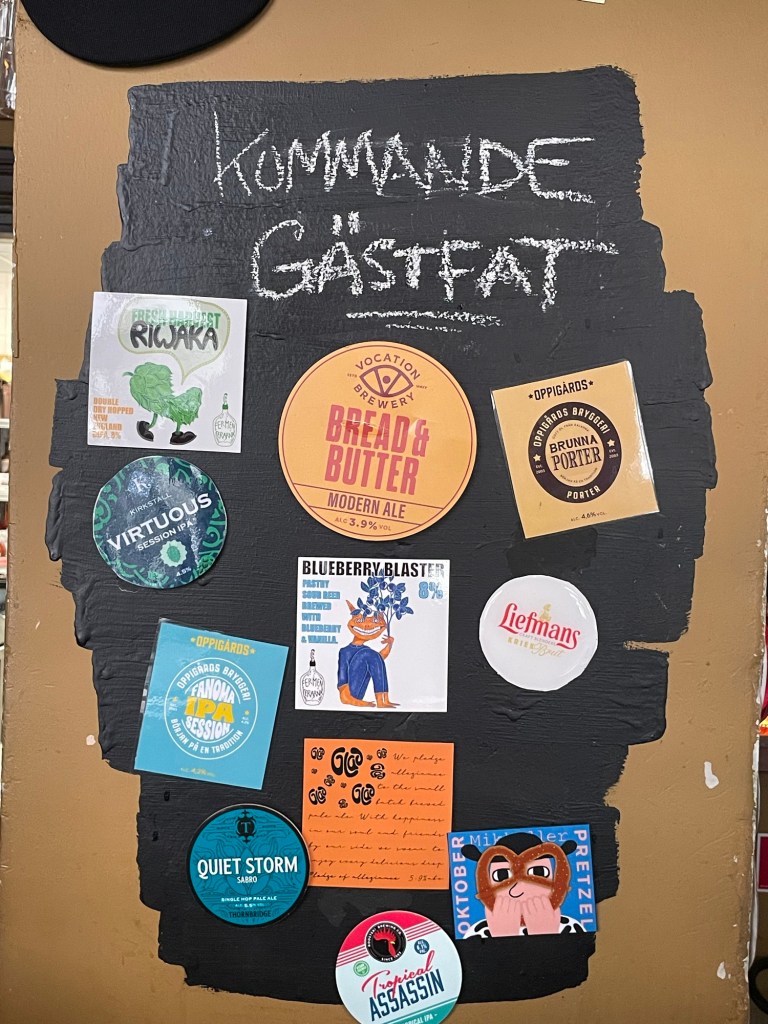 KOMMANDE
GÄSTFAT
FRESH HARVEST
RIWAKA
DOUBLE
DRY HOPPED
NEW
ENGLAND
DIPA, 8%
VOCATION
BREWERY
BREAD &
BUTTER
MODERN ALE
ALC 3.9% VOL
·OPPIGÅRDS·
OPPIGÅRDS BRYGGERI
BRUNNA
PORTER
PORTER
ALC. 4,6% VOL
KIRKSTALL
VIRTUOUS
SESSION IPA
4.5%
BLUEBERRY BLASTER
PASTRY
SOUR BEER
BREWED
WITH
BLUEBERRY
& VANILLA.
8%
Liefmans
KRIEK Brut
·OPPIGÅRDS·
OPPIGÅRDS BRYGGERI
FANOMA
IPA
SESSION
BÖRJAN PÅ EN TRADITION
We pledge
allegiance
to the small
batch brewed
pale ale. With happiness
in our soul and friends
by our side we vow to
enjoy every delicious drop
Pledge of allegiance
QUIET STORM
SABRO
SINGLE HOP PALE ALE
THORNBRIDGE
Mikkeller
OKTOBER
PRETZEL
Tropical
ASSASSIN